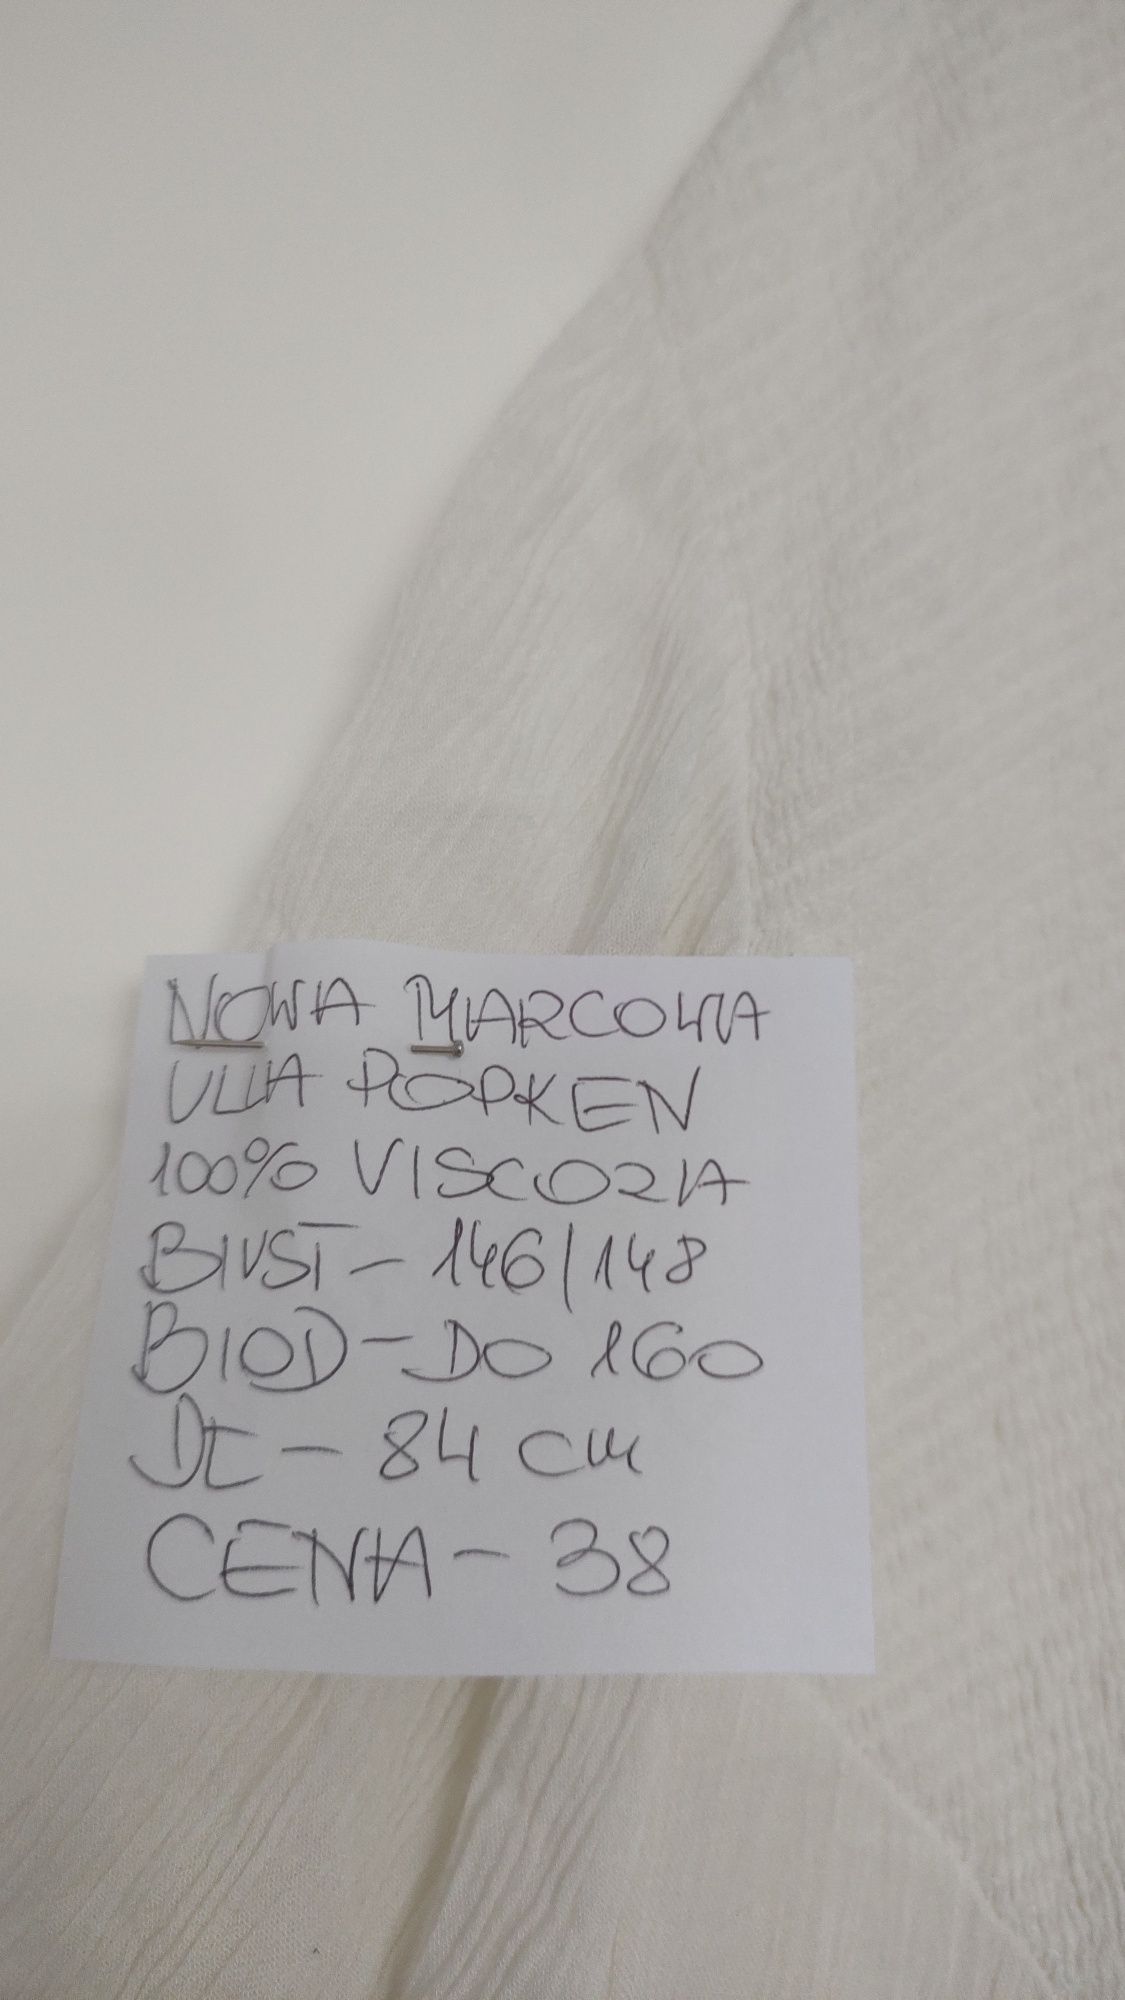 NOWA MARCOWA
ULLA POPKEN
100% VISCOZA
BIUST - 146/148
BIOD - DO 160
DŁ - 84 cm
CENA - 38